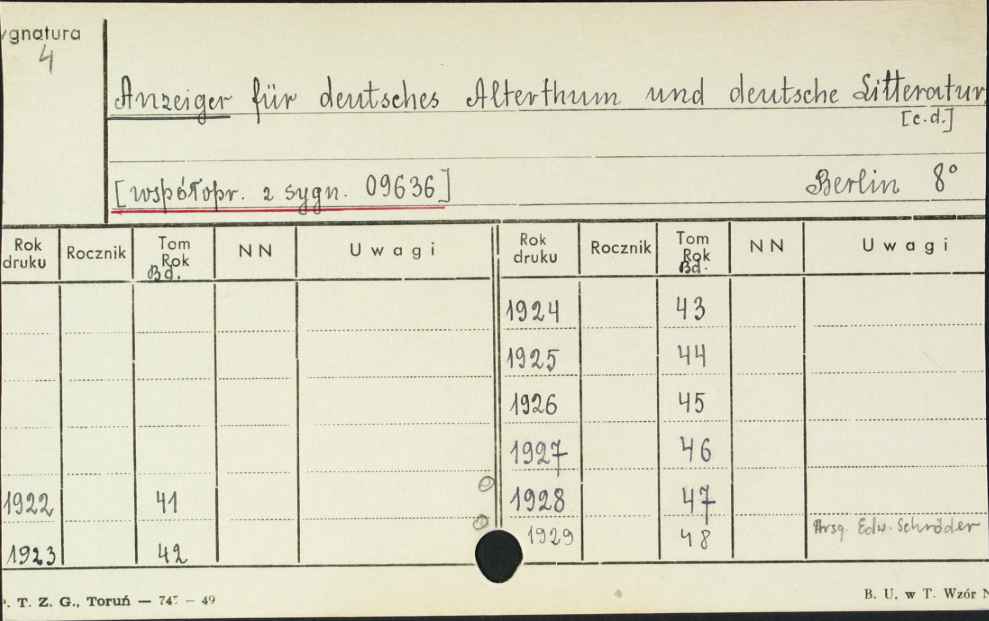 ygnatura
4
Anzeiger für deutsches Alterthum und deutsche Litteratur
[c.d.]
[współopr. z sygn. 09636] Berlin 8°
Rok druku Rocznik Tom Rok Bd. NN Uwagi Rok druku Rocznik Tom Rok Bd. NN Uwagi
1924 43
1925 44
1926 45
1927 46
1922 41 1928 47
1929 48 Hrsg. Edw. Schröder
1923 42
T. Z. G., Toruń — 747 — 49 B. U. w T. Wzór N